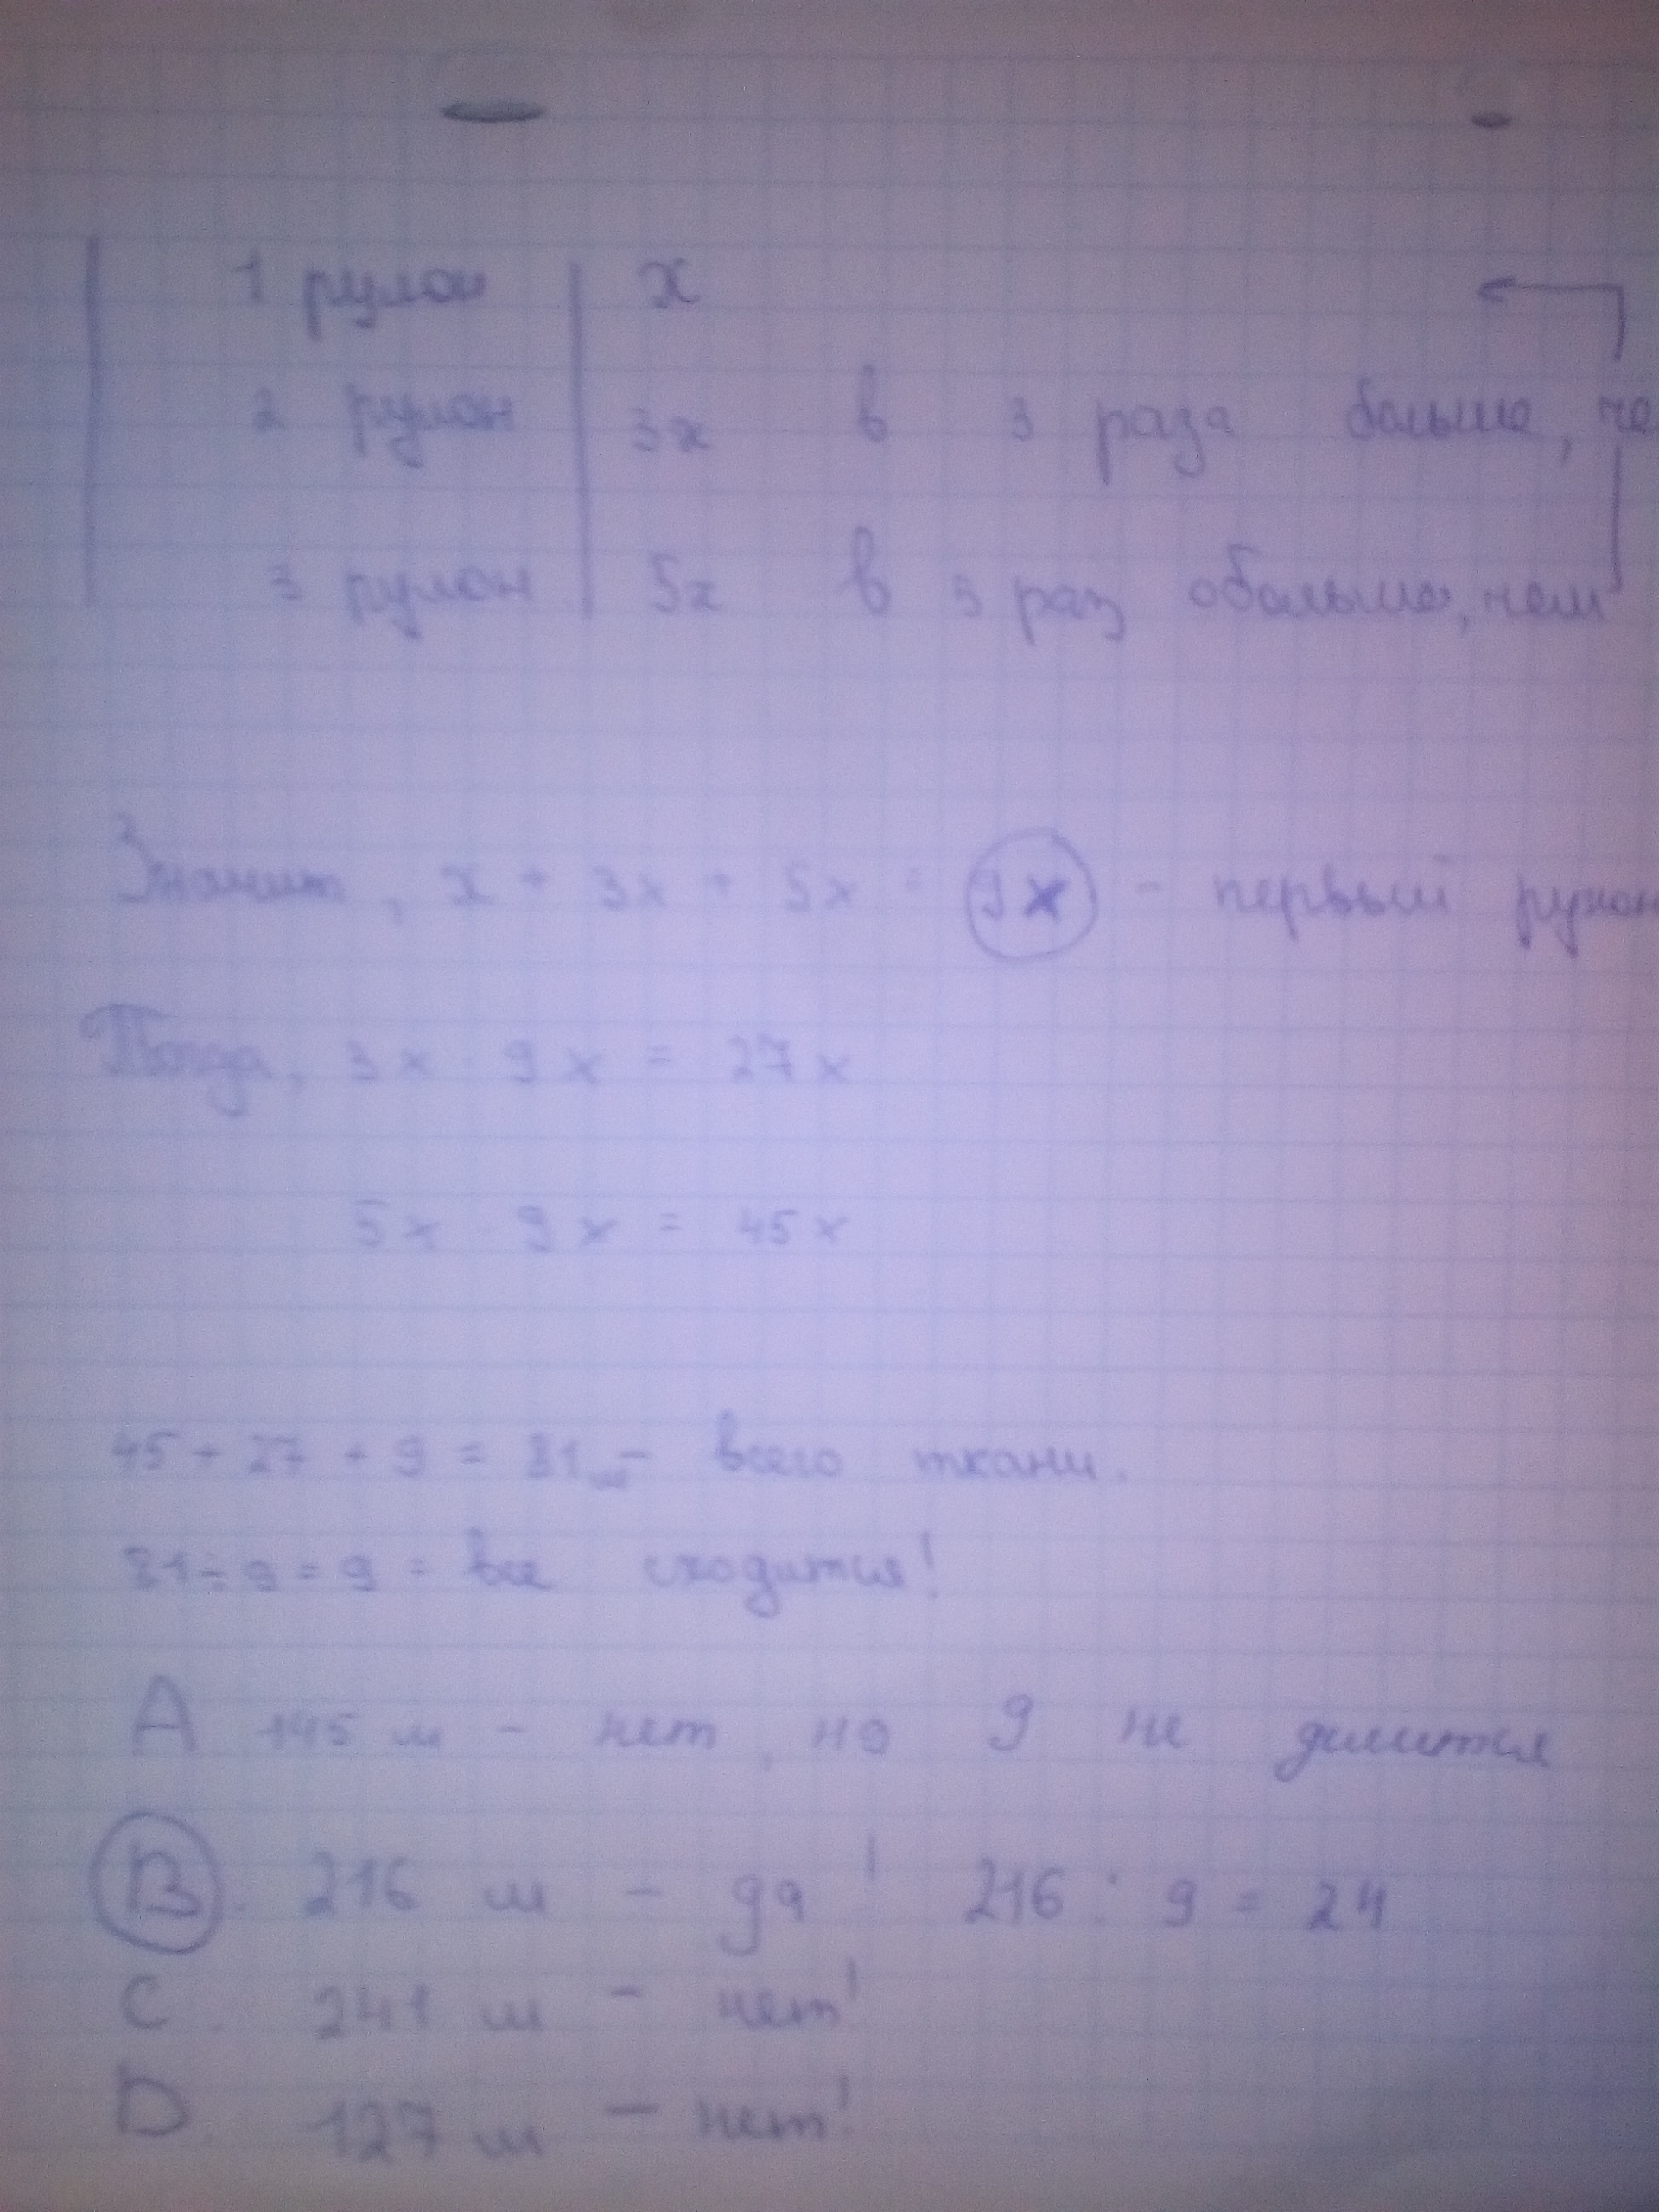 1 рулон | x
2 рулон | 3x в 3 раза больше, че
3 рулон | 5x в 5 раз больше, чем
Значит, x + 3x + 5x = 9x - первый рулон
Тогда, 3x · 9x = 27x
5x · 9x = 45x
45 + 27 + 9 = 81 м - всего ткани.
81 ÷ 9 = 9 = все сходится!
A 145 м - нет, на 9 не делится
B. 216 м - да! 216 : 9 = 24
C. 241 м - нет!
D. 127 м - нет!